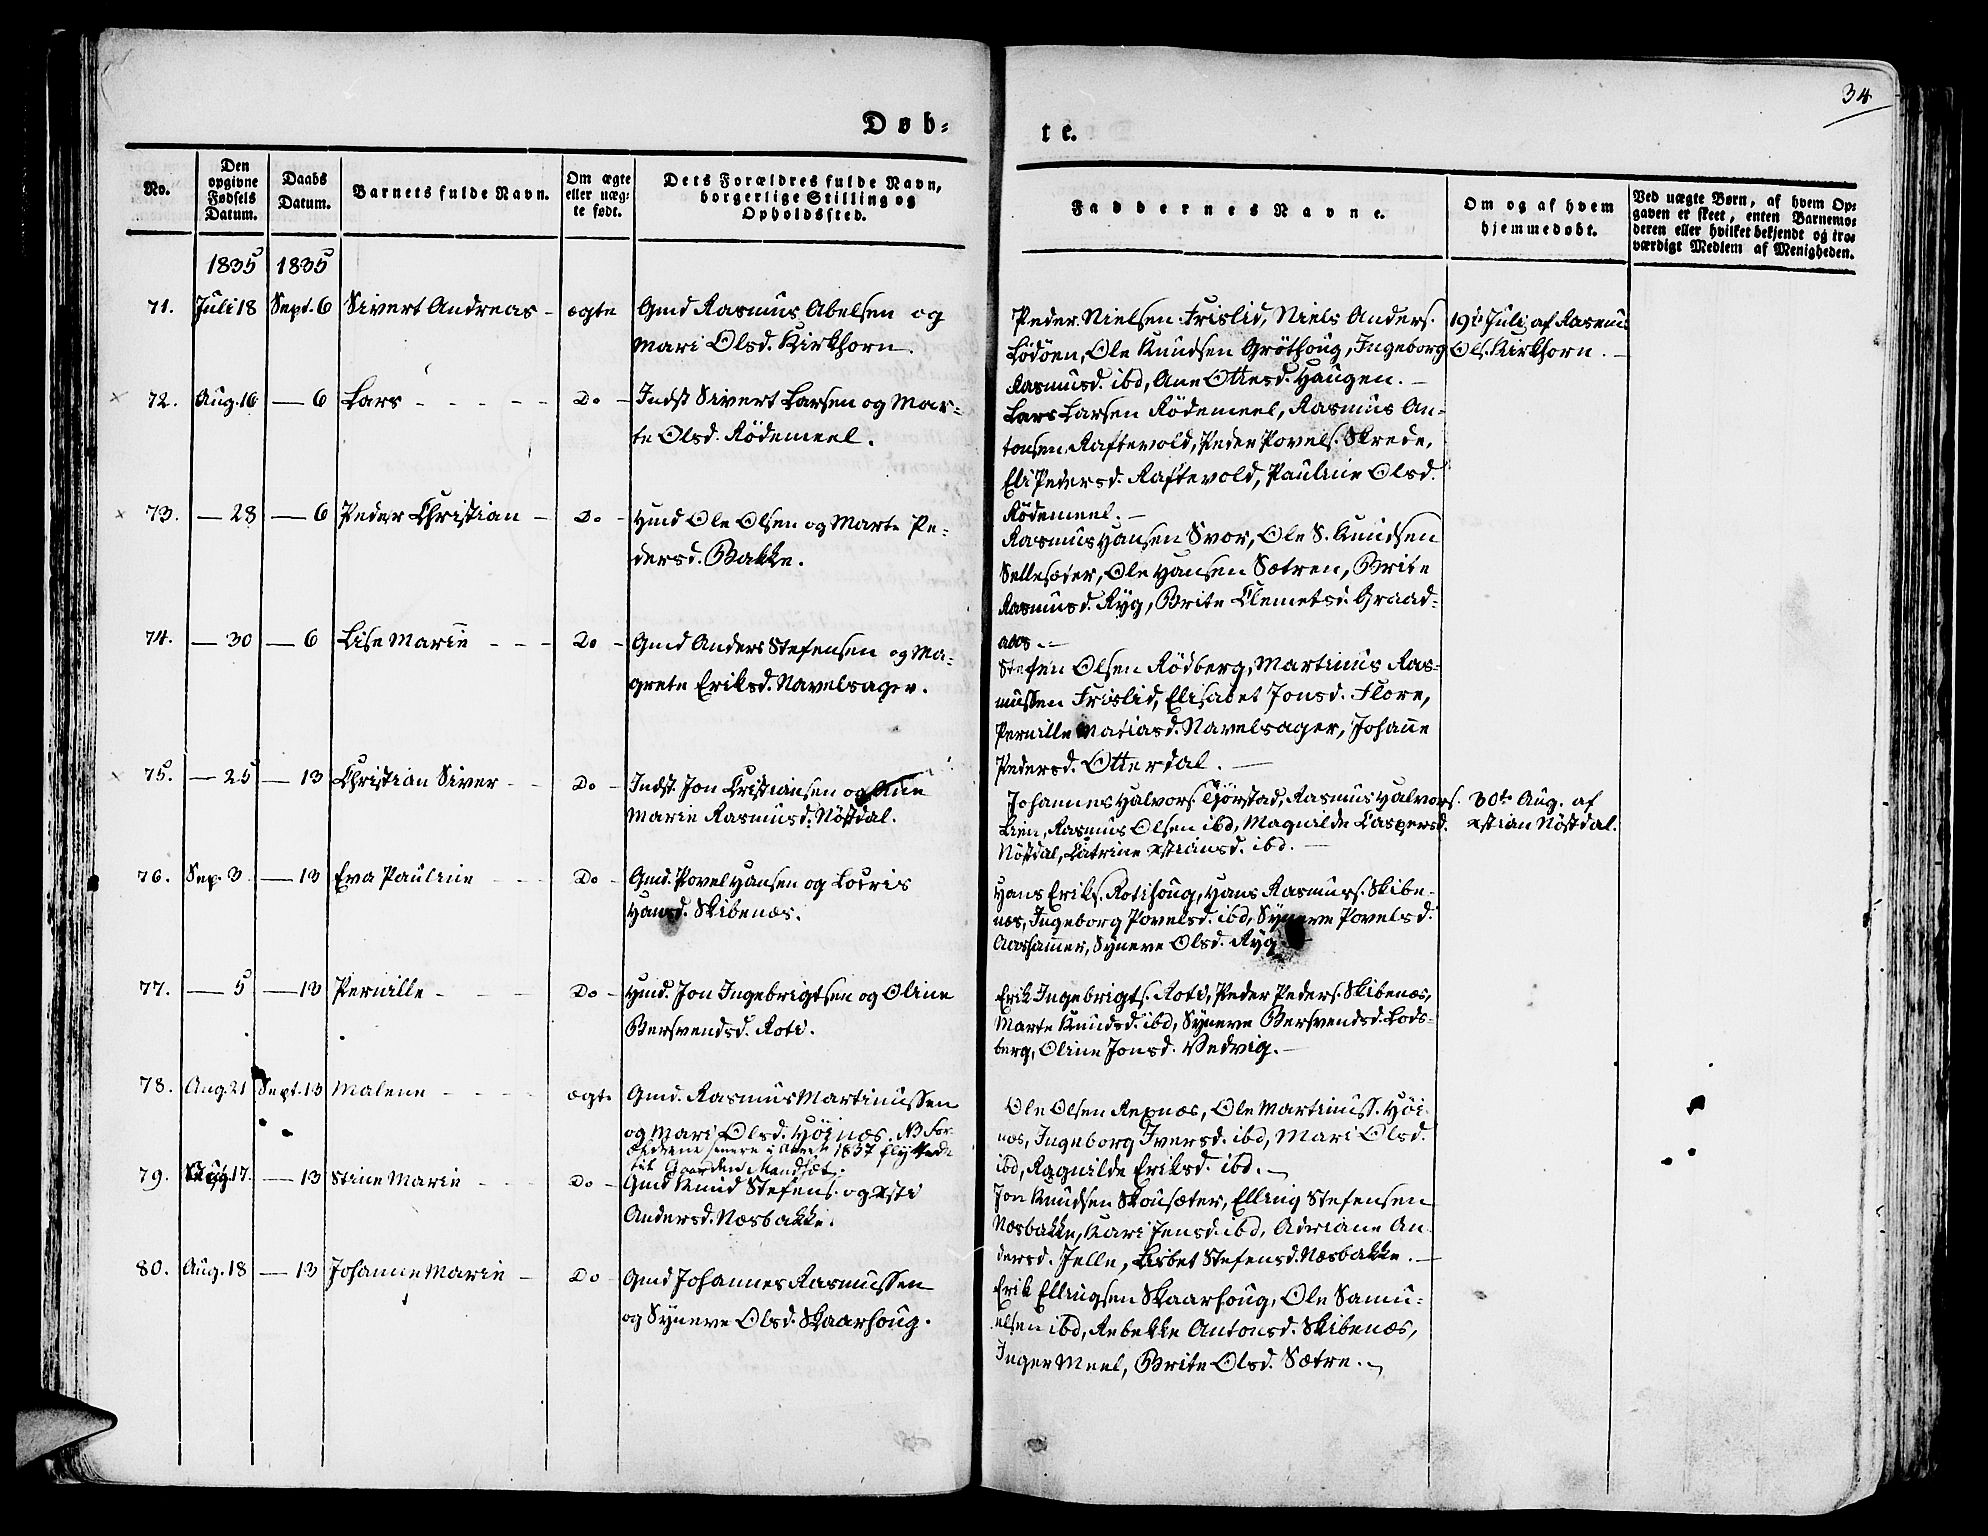 34
Døb-
te.
No.
Den opgivne Fødsels Datum.
Daabs Datum.
Barnets fulde Navn.
Om ægte eller uægte født.
Dets Forældres fulde Navn, borgerlige Stilling og Opholdssted.
Faddernes Navne.
Om og af hvem hjemmedøbt.
Ved uægte Børn, af hvem Opgaven er skeet, enten Barnemoderen eller hvilket bekjendt og troværdigt Medlem af Menigheden.
1835 1835
71. Juli 18 Sept. 6 Sivert Andreas - ægte Gmd Rasmus Abelsen og
Mari Olsd. Kirkhorn.
Peder Nielsen Frislid, Niels Anders.
Lödöen, Ole Knudsen Gröthoug, Ingeborg
Rasmusd. ibd, Ane Ottesd. Haugen. -
19de Juli af Rasmus
Ols. Kirkhorn. -
72. Aug. 16 - 6 Lars - - - - - Do - Indst Sivert Larsen og Mar-
te Olsd. Rödemeel.
Lars Larsen Rödemeel, Rasmus An-
tonsen Raftevold, Peder Povels. Skrede,
Eli Pedersd. Raftevold, Pauline Olsd.
Rödemeel. -
73. - 28 - 6 Peder Christian - Do - Hmd Ole Olsen og Marte Pe-
dersd. Bakke.
Rasmus Hansen Svor, Ole S. Knudsen
Sellesæter, Ole Hansen Sætren, Brite
Rasmusd. Ryg, Brite Clemetsd. Graad-
aas. -
74. - 30 - 6 Lise Marie - - - Do - Gmd Anders Stefensen og Ma-
grete Eriksd. Navelsager.
Stefen Olsen Rödberg, Martinus Ras-
mussen Frislid, Elisabet Jonsd. Flore,
Pernille Matiasd. Navelsager, Johanne
Pedersd. Otterdal. -
75. - 25 - 13 Christian Siver - - Do - Indst. Jon Cristiansen og Ane
Marie Rasmusd. Nöstdal.
Johannes Halvors. Tjörstad, Rasmus Halvors.
Lien, Rasmus Olsen ibd, Magnilde Caspersd.
Nöstdal, Catrine Xstiansd. ibd. -
30te Aug. af
Xstian Nöstdal.
76. Sep. 3 - 13 Eva Pauline - - Do - Gmd. Povel Hansen og Lovris
Hansd. Skibenæs.
Hans Eriks. Rotihoug, Hans Rasmuss. Skibe-
næs, Ingeborg Povelsd. ibd, Synneve Povelsd.
Aarshammer, Synneve Olsd. Ryg. -
77. - 5 - 13 Pernille - - - Do - Hmd. Jon Ingebrigtsen og Oline
Bersvendsd. Roti.
Erik Ingebrigts. Roti, Peder Peders. Skibenæs,
Marte Knudsd. ibd, Synneve Bersvendsd. Lods-
berg, Oline Jonsd. Vedvig. -
78. Aug. 21 Sept. 13 Malene - - - - ægte Gmd. Rasmus Martinussen
og Mari Olsd. Höinæs. NB For-
ældrene senere 1837 flyttede
til Gaarden Mandsæt.
Ole Olsen Repnæs, Ole Martinuss. Höi-
næs, Ingeborg Iversd. ibd, Mari Olsd.
ibd, Ragnilde Eriksd. ibd. -
79. Aug. 17. - 13 Stine Marie - - - Do - Gmd Knud Stefens. og Xsti
Andersd. Næsbakke.
Jon Knudsen Skousæter, Elling Stefensen
Næsbakke, Kari Jensd. ibd, Adriane An-
dersd. Jelle, Lisbet Stefensd. Næsbakke. -
80. Aug. 18 - 13 Johanne Marie - Do - Gmd Johannes Rasmussen
og Synneve Olsd. Skaarhoug.
Erik Ellingsen Skaarhoug, Ole Samu-
elsen ibd, Rebekke Antonsd. Skibenæs,
Inger Meel, Brite Olsd. Sætre. -